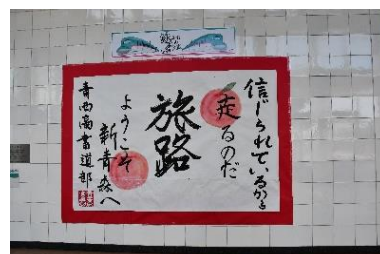 信じられているから
走るのだ
旅路
ようこそ
新青森へ
青西高書道部